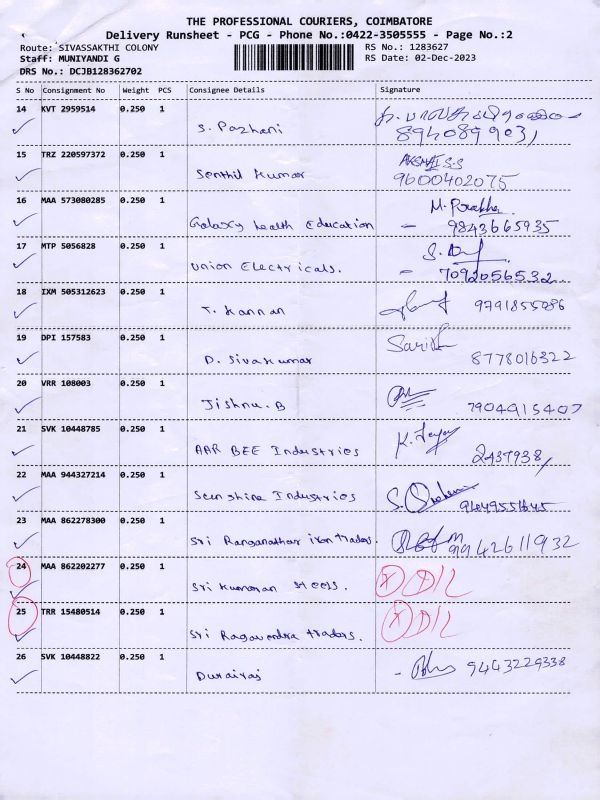 THE PROFESSIONAL COURIERS, COIMBATORE
Delivery Runsheet - PCG - Phone No.:0422-3505555 - Page No.:2
Route: SIVASSAKTHI COLONY RS No.: 1283627
Staff: MUNIYANDI G RS Date: 02-Dec-2023
DRS No.: DCJB128362702
S No Consignment No Weight PCS Consignee Details Signature
14 KVT 2959514 0.250 1
S. Pazhani 8940899031
15 TRZ 220597372 0.250 1
Senthil Kumar 9600402075
16 MAA 573080285 0.250 1
Galaxy health Education - 9843665935
17 MTP 5056828 0.250 1
Union Electricals. - 7092056532
18 IXM 505312623 0.250 1
T. Kannan 9791855086
19 DPI 157583 0.250 1
D. Sivakumar 8778016322
20 VRR 108003 0.250 1
Jishnu. B 7904915407
21 SVK 10448785 0.250 1
AAR BEE Industries 2437938
22 MAA 944327214 0.250 1
Sunshine Industries
23 MAA 862278300 0.250 1
Sri Ranganathar iron traders. 9942611932
24 MAA 862202277 0.250 1
Sri Kumaran steels. X D/L
25 TRR 15480514 0.250 1
Sri Ragavendra traders. X D/L
26 SVK 10448822 0.250 1
Durairaj - 9443229338